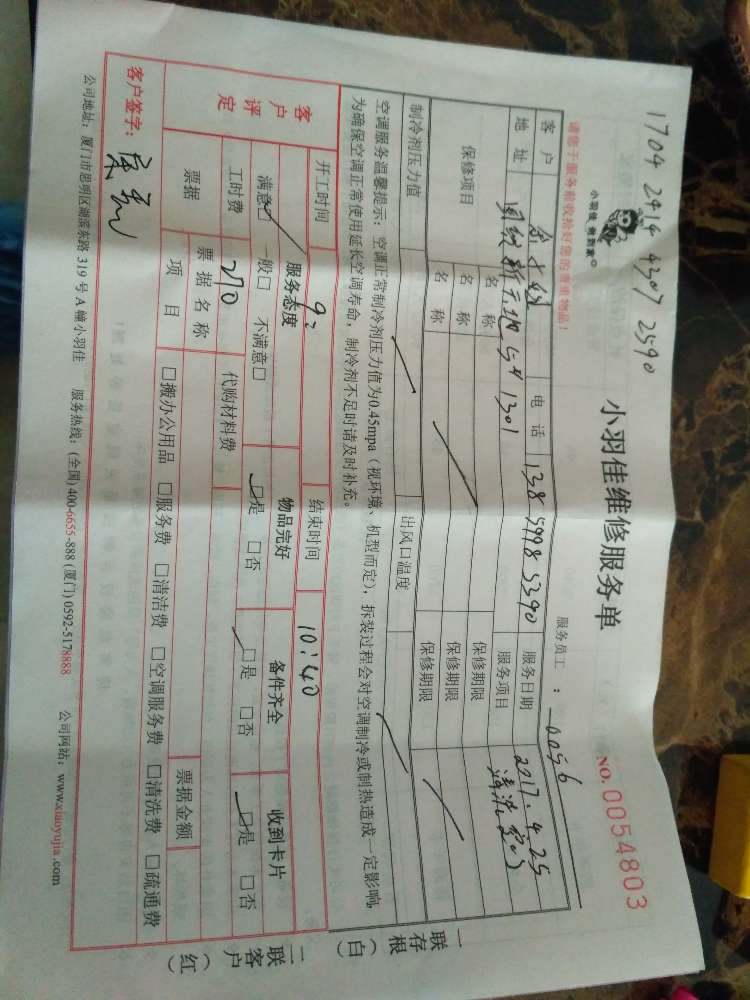 1704 2414 4307 2590
小羽佳 焦到家
小羽佳维修服务单
NO. 0054803
请您于服务前收拾好您的贵重物品！
服务员工 ： 0056
客户 电话 138 5998 5390 服务日期 2017.4.25
地址 新天地 1301 服务项目 清洗空
保修项目 名称 保修期限
名称 保修期限
名称 保修期限
制冷剂压力值 出风口温度
空调服务温馨提示：空调正常制冷剂压力值为0.45mpa（视环境、机型而定），拆装过程会对空调制冷或制热造成一定影响，
为确保空调正常使用延长空调寿命，制冷剂不足时请及时补充。
开工时间 9: 结束时间 10:40
客户评定 服务态度 物品完好 备件齐全 收到卡片
满意□ 一般□ 不满意□ □是 □否 □是 □否 □是 □否
工时费 270 代购材料费
票据 票据名称 票据金额
项目 □搬办公用品 □服务费 □清洁费 □空调服务费 □清洗费 □疏通费
客户签字：
公司地址：厦门市思明区湖滨东路 319 号 A 幢小羽佳 服务热线：(全国) 400-6655-888 (厦门) 0592-5178888 公司网站：www.xiaoyujia.com
一联存根（白）
二联客户（红）